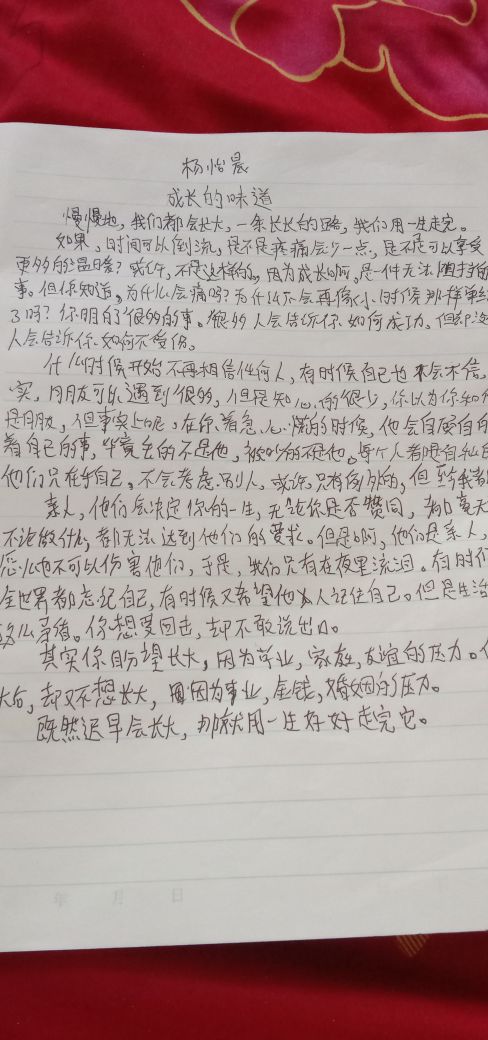 杨怡晨
成长的味道
慢慢地，我们都会长大，一条长长的路，我们用一生走完。
如果，时间可以倒流，是不是疼痛会少一点，是不是可以享受
更多的温暖？或许，不是这样的，因为成长啊，是一件无法
事。但你知道，为什么会痛吗？为什么不会再像小时候那样单纯
了吗？你明白了很多的事。很多人会告诉你如何成功，但却没
人会告诉你如何不受伤。
什么时候开始不再相信任何人，有时候自己也不会不信，
实，朋友可以遇到很多，但是知心的很少，你以为你和他
是朋友，但事实上呢，在你着急心慌的时候，他会自顾自的
着自己的事，毕竟主的不是他，被的不是他。每个人都是自私的
他们只在乎自己，不会考虑别人，或许只有例外的，但至今我都
亲人，他们会决定你的一生，无论你是否赞同，都毫无
不论做什么，都无法达到他们的要求。但是啊，他们是亲人，
怎么也不可以伤害他们，于是，我们只有在夜里流泪。有时候
全世界都忘记自己，有时候又希望他人记住自己。但是生活
这么矛盾。你想要回击，却不敢说出口。
其实你盼望长大，因为学业，家庭，友谊的压力。
大后，却又不想长大，因为事业，金钱，婚姻的压力。
既然迟早会长大，那就用一生好好走完它。
年 月 日